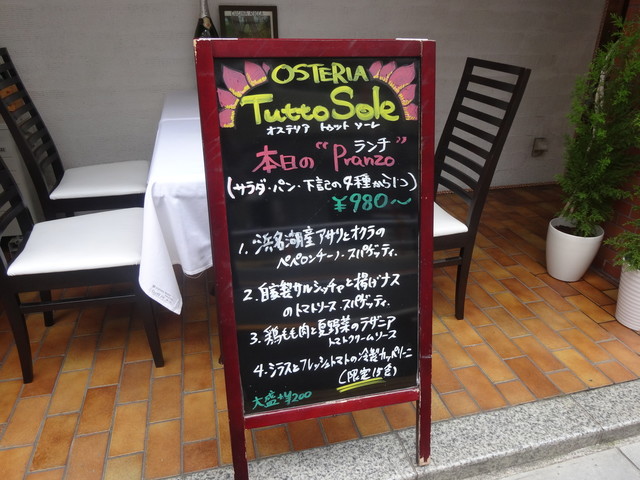 OSTERIA
Tutto Sole
オステリア トゥット ソーレ
ランチ
本日の "Pranzo"
(サラダ・パン・下記の4種から1つ)
¥980～
1. 浜名湖産アサリとオクラの
ペペロンチーノ・スパゲッティ.
2. 自家製サルシッチャと揚げナス
のトマトソース スパゲッティ.
3. 鶏もも肉と夏野菜のラザニア
トマトクリームソース
4. シラスとフレッシュトマトの冷製カッペリーニ
大盛+¥200